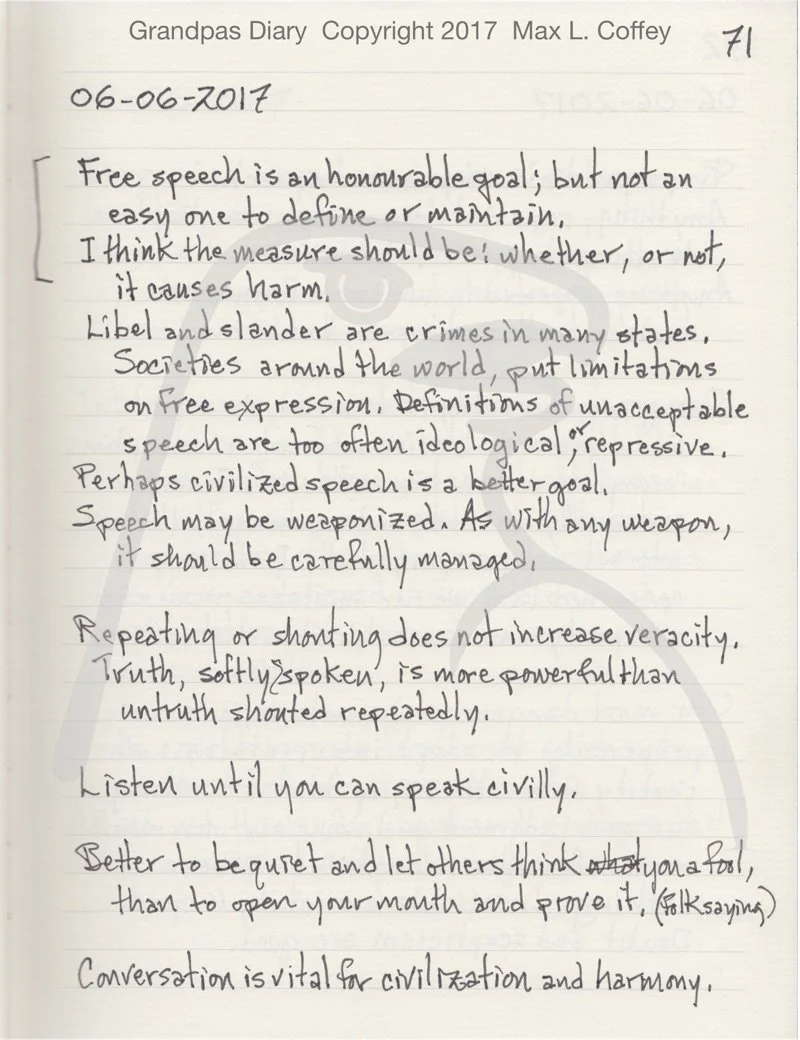 Grandpas Diary Copyright 2017 Max L. Coffey
71
06-06-2017
Free speech is an honourable goal; but not an
easy one to define or maintain.
I think the measure should be: whether, or not,
it causes harm.
Libel and slander are crimes in many states.
Societies around the world, put limitations
on free expression. Definitions of unacceptable
speech are too often ideological, or repressive.
Perhaps civilized speech is a better goal.
Speech may be weaponized. As with any weapon,
it should be carefully managed.
Repeating or shouting does not increase veracity.
Truth, softly spoken, is more powerful than
untruth shouted repeatedly.
Listen until you can speak civilly.
Better to be quiet and let others think you a fool,
than to open your mouth and prove it. (Folk saying)
Conversation is vital for civilization and harmony.